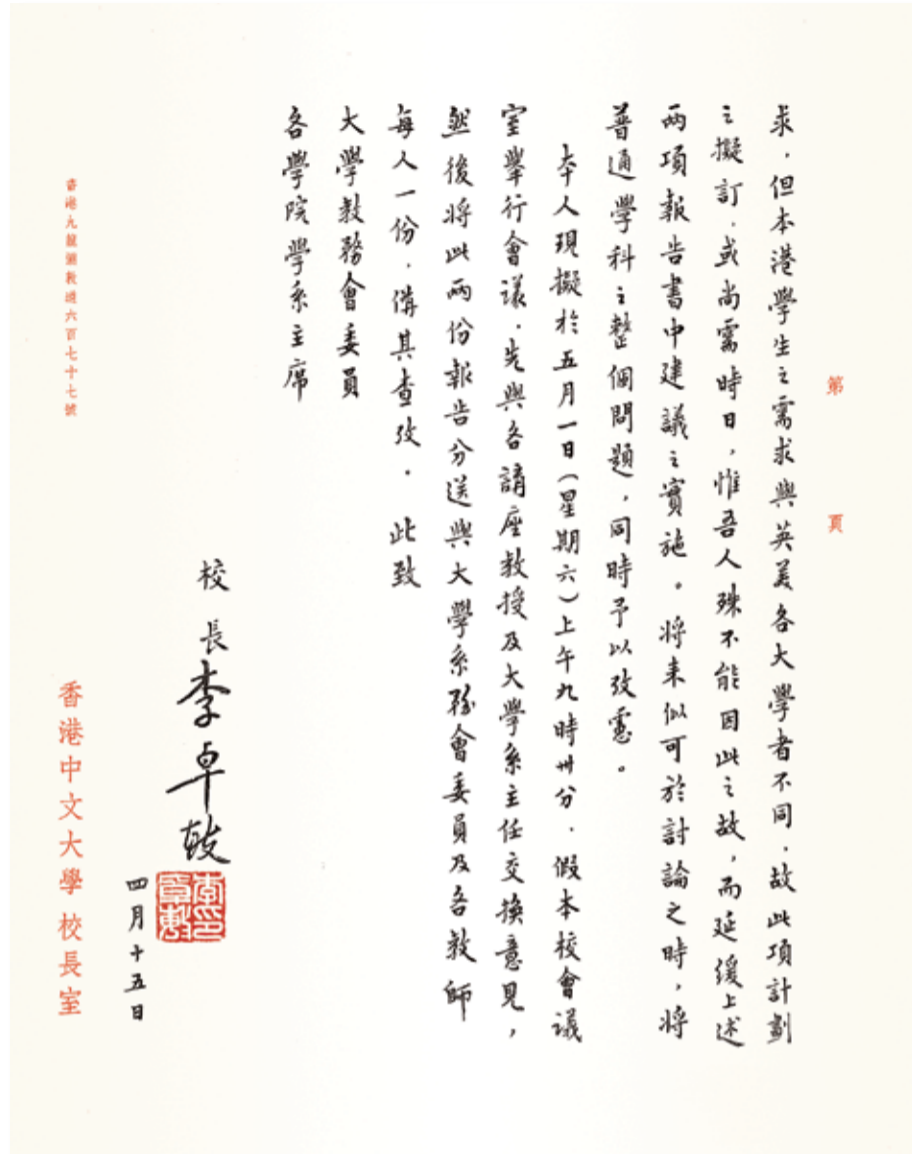 第　頁
求，但本港學生之需求與英美各大學者不同，故此項計劃
之擬訂，或尚需時日，惟吾人殊不能因此之故，而延緩上述
兩項報告書中建議之實施。將來似可於討論之時，將
普通學科之整個問題，同時予以攷慮。
本人現擬於五月一日（星期六）上午九時卅分，假本校會議
室舉行會議，先與各講座教授及大學系主任交換意見，
然後將此兩份報告分送與大學系務會委員及各教師
每人一份，備其查攷。　此致
大學教務會委員
各學院學系主席
校長李卓敏
四月十五日
香港中文大學 校長室
香港九龍彌敦道六百七十七號